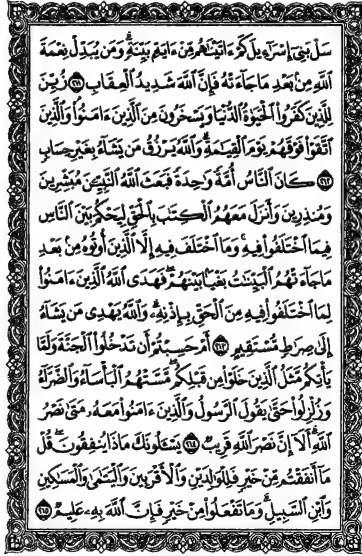 سَلْ بَنِىٓ إِسْرَٰٓءِيلَ كَمْ ءَاتَيْنَٰهُم مِّنْ ءَايَةٍۭ بَيِّنَةٍ ۗ وَمَن يُبَدِّلْ نِعْمَةَ
ٱللَّهِ مِنۢ بَعْدِ مَا جَآءَتْهُ فَإِنَّ ٱللَّهَ شَدِيدُ ٱلْعِقَابِ ٢١١ زُيِّنَ
لِلَّذِينَ كَفَرُوا۟ ٱلْحَيَوٰةُ ٱلدُّنْيَا وَيَسْخَرُونَ مِنَ ٱلَّذِينَ ءَامَنُوا۟ ۘ وَٱلَّذِينَ
ٱتَّقَوْا۟ فَوْقَهُمْ يَوْمَ ٱلْقِيَٰمَةِ ۗ وَٱللَّهُ يَرْزُقُ مَن يَشَآءُ بِغَيْرِ حِسَابٍ
٢١٢ كَانَ ٱلنَّاسُ أُمَّةً وَٰحِدَةً فَبَعَثَ ٱللَّهُ ٱلنَّبِيِّۦنَ مُبَشِّرِينَ
وَمُنذِرِينَ وَأَنزَلَ مَعَهُمُ ٱلْكِتَٰبَ بِٱلْحَقِّ لِيَحْكُمَ بَيْنَ ٱلنَّاسِ
فِيمَا ٱخْتَلَفُوا۟ فِيهِ ۚ وَمَا ٱخْتَلَفَ فِيهِ إِلَّا ٱلَّذِينَ أُوتُوهُ مِنۢ بَعْدِ
مَا جَآءَتْهُمُ ٱلْبَيِّنَٰتُ بَغْيًۢا بَيْنَهُمْ ۖ فَهَدَى ٱللَّهُ ٱلَّذِينَ ءَامَنُوا۟
لِمَا ٱخْتَلَفُوا۟ فِيهِ مِنَ ٱلْحَقِّ بِإِذْنِهِۦ ۗ وَٱللَّهُ يَهْدِى مَن يَشَآءُ
إِلَىٰ صِرَٰطٍ مُّسْتَقِيمٍ ٢١٣ أَمْ حَسِبْتُمْ أَن تَدْخُلُوا۟ ٱلْجَنَّةَ وَلَمَّا
يَأْتِكُم مَّثَلُ ٱلَّذِينَ خَلَوْا۟ مِن قَبْلِكُم ۖ مَّسَّتْهُمُ ٱلْبَأْسَآءُ وَٱلضَّرَّآءُ
وَزُلْزِلُوا۟ حَتَّىٰ يَقُولَ ٱلرَّسُولُ وَٱلَّذِينَ ءَامَنُوا۟ مَعَهُۥ مَتَىٰ نَصْرُ
ٱللَّهِ ۗ أَلَآ إِنَّ نَصْرَ ٱللَّهِ قَرِيبٌ ٢١٤ يَسْـَٔلُونَكَ مَاذَا يُنفِقُونَ ۖ قُلْ
مَآ أَنفَقْتُم مِّنْ خَيْرٍ فَلِلْوَٰلِدَيْنِ وَٱلْأَقْرَبِينَ وَٱلْيَتَٰمَىٰ وَٱلْمَسَٰكِينِ
وَٱبْنِ ٱلسَّبِيلِ ۗ وَمَا تَفْعَلُوا۟ مِنْ خَيْرٍ فَإِنَّ ٱللَّهَ بِهِۦ عَلِيمٌ ٢١٥